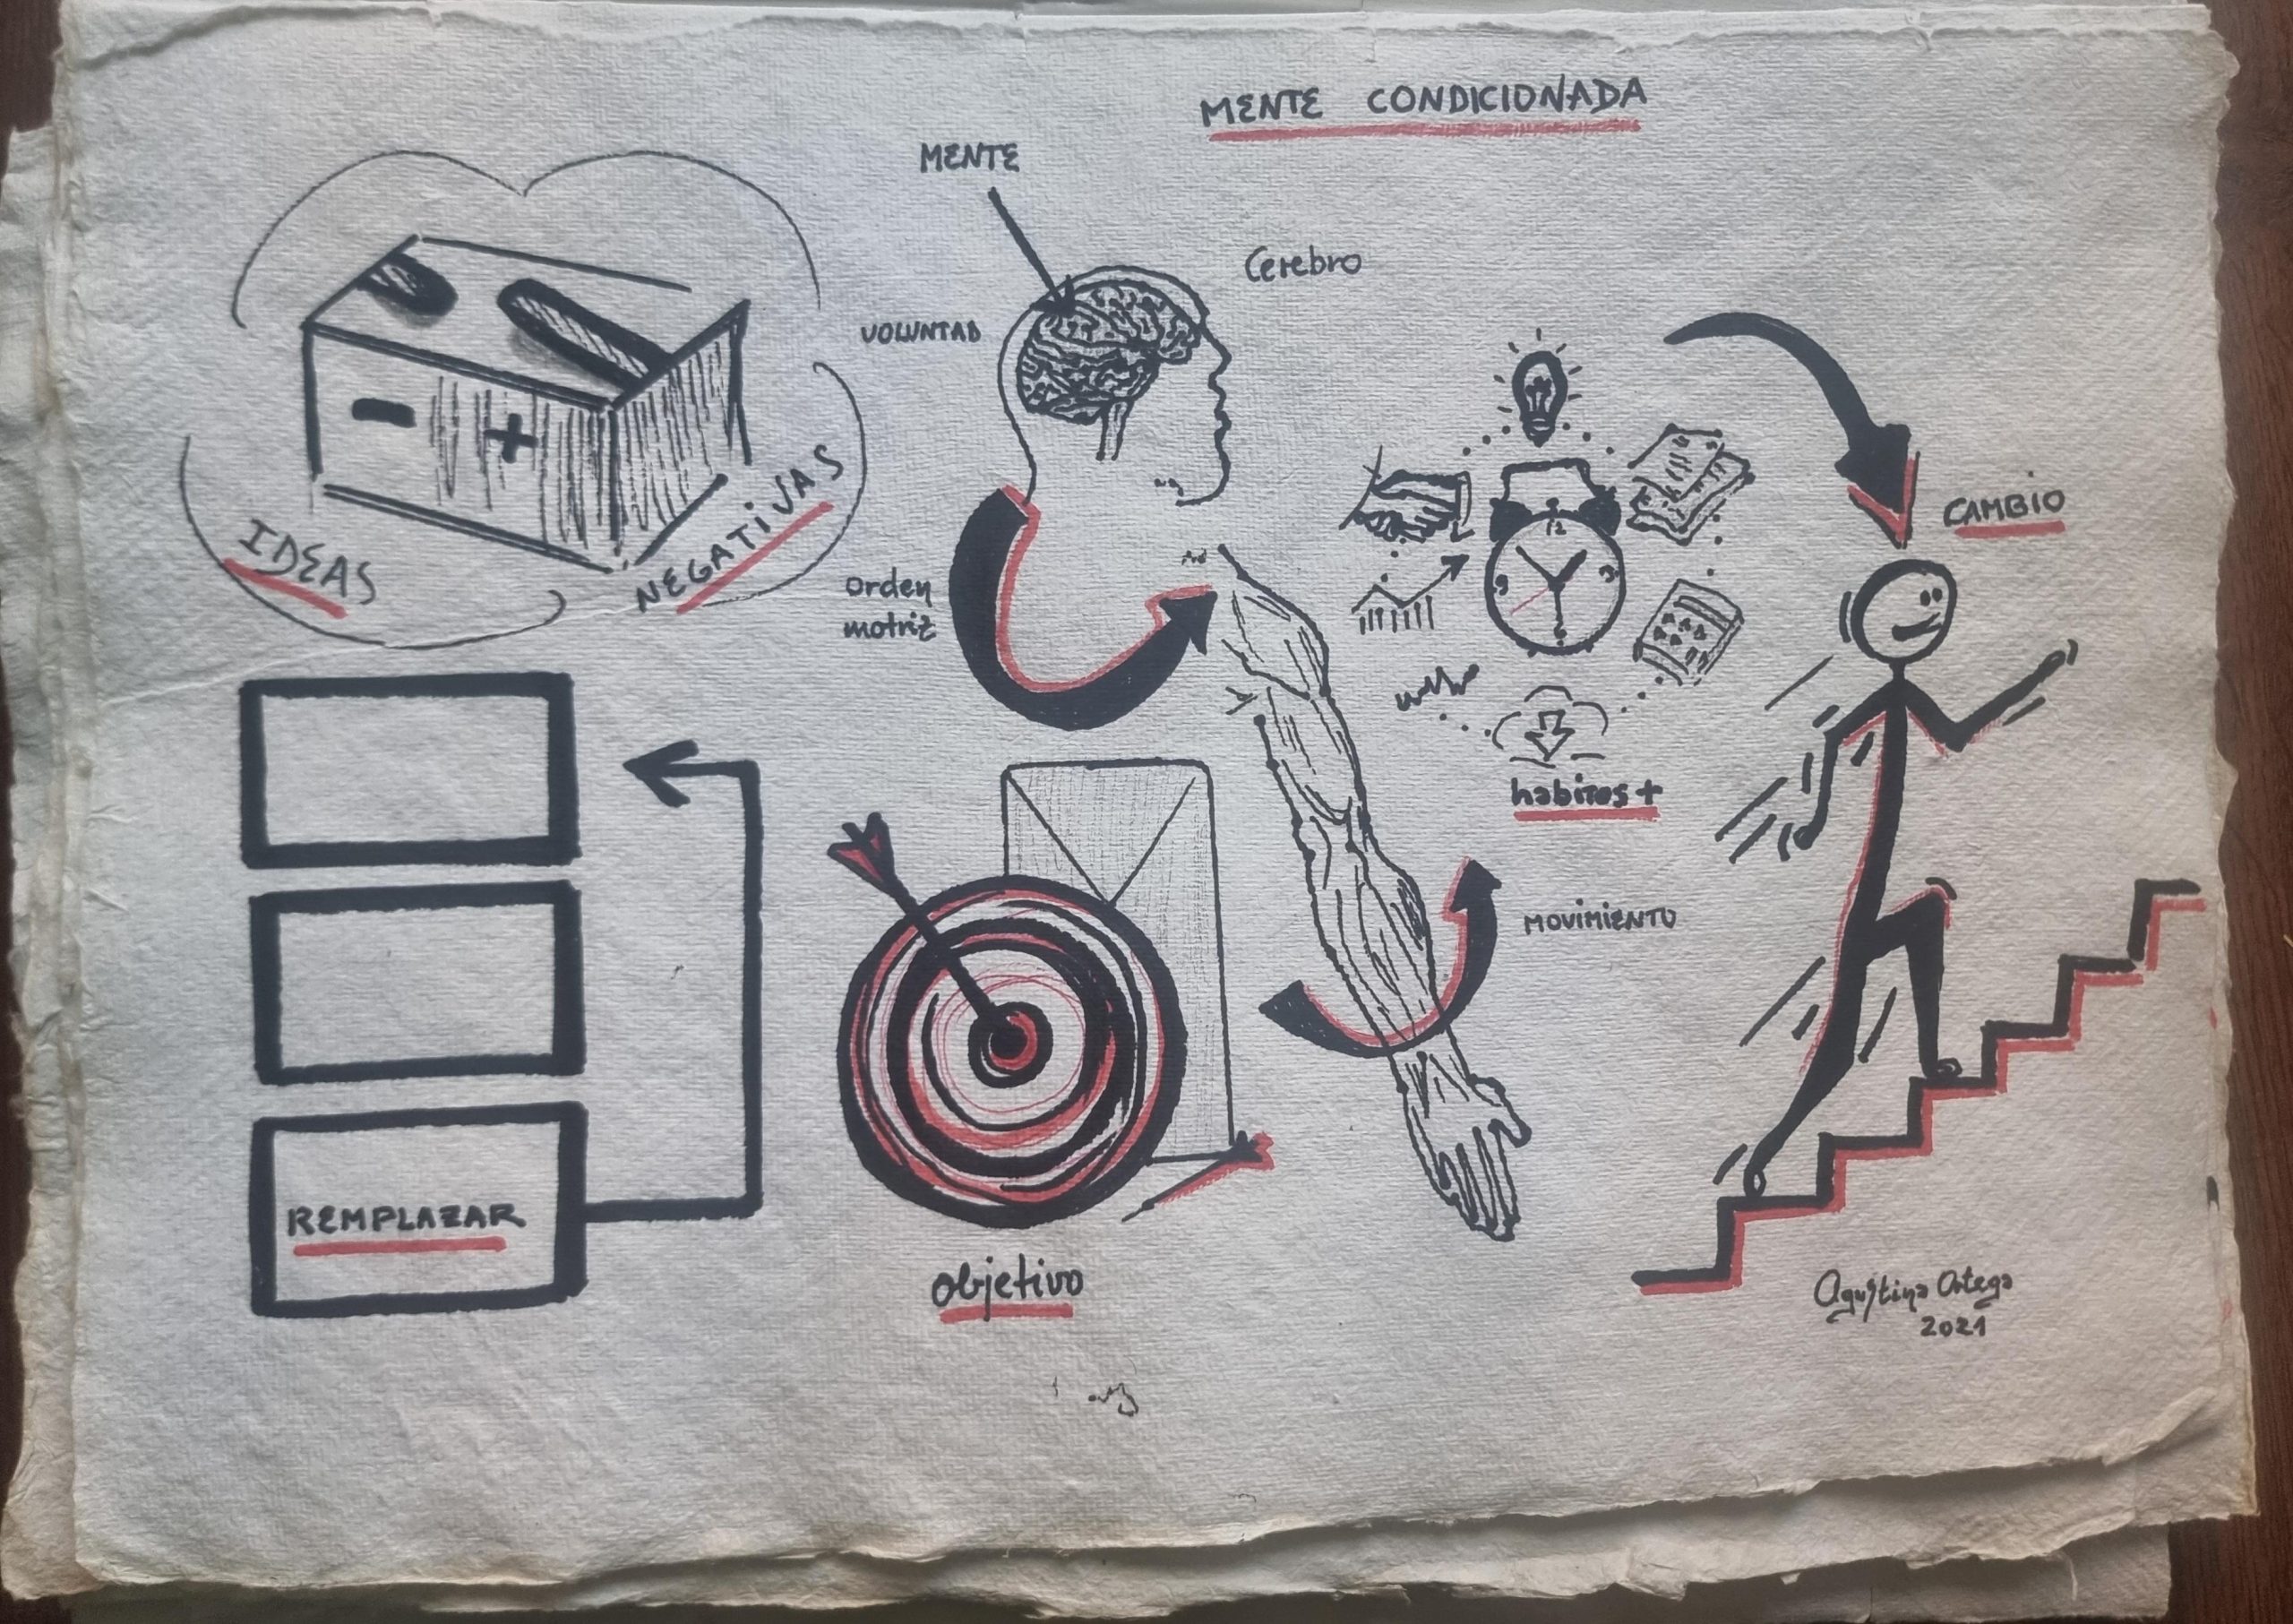 MENTE CONDICIONADA
MENTE
Cerebro
VOLUNTAD
IDEAS
NEGATIVAS
- +
orden
motriz
12
3
6
9
CAMBIO
habitos +
MOVIMIENTO
REMPLAZAR
objetivo
Agustina Ortega
2021